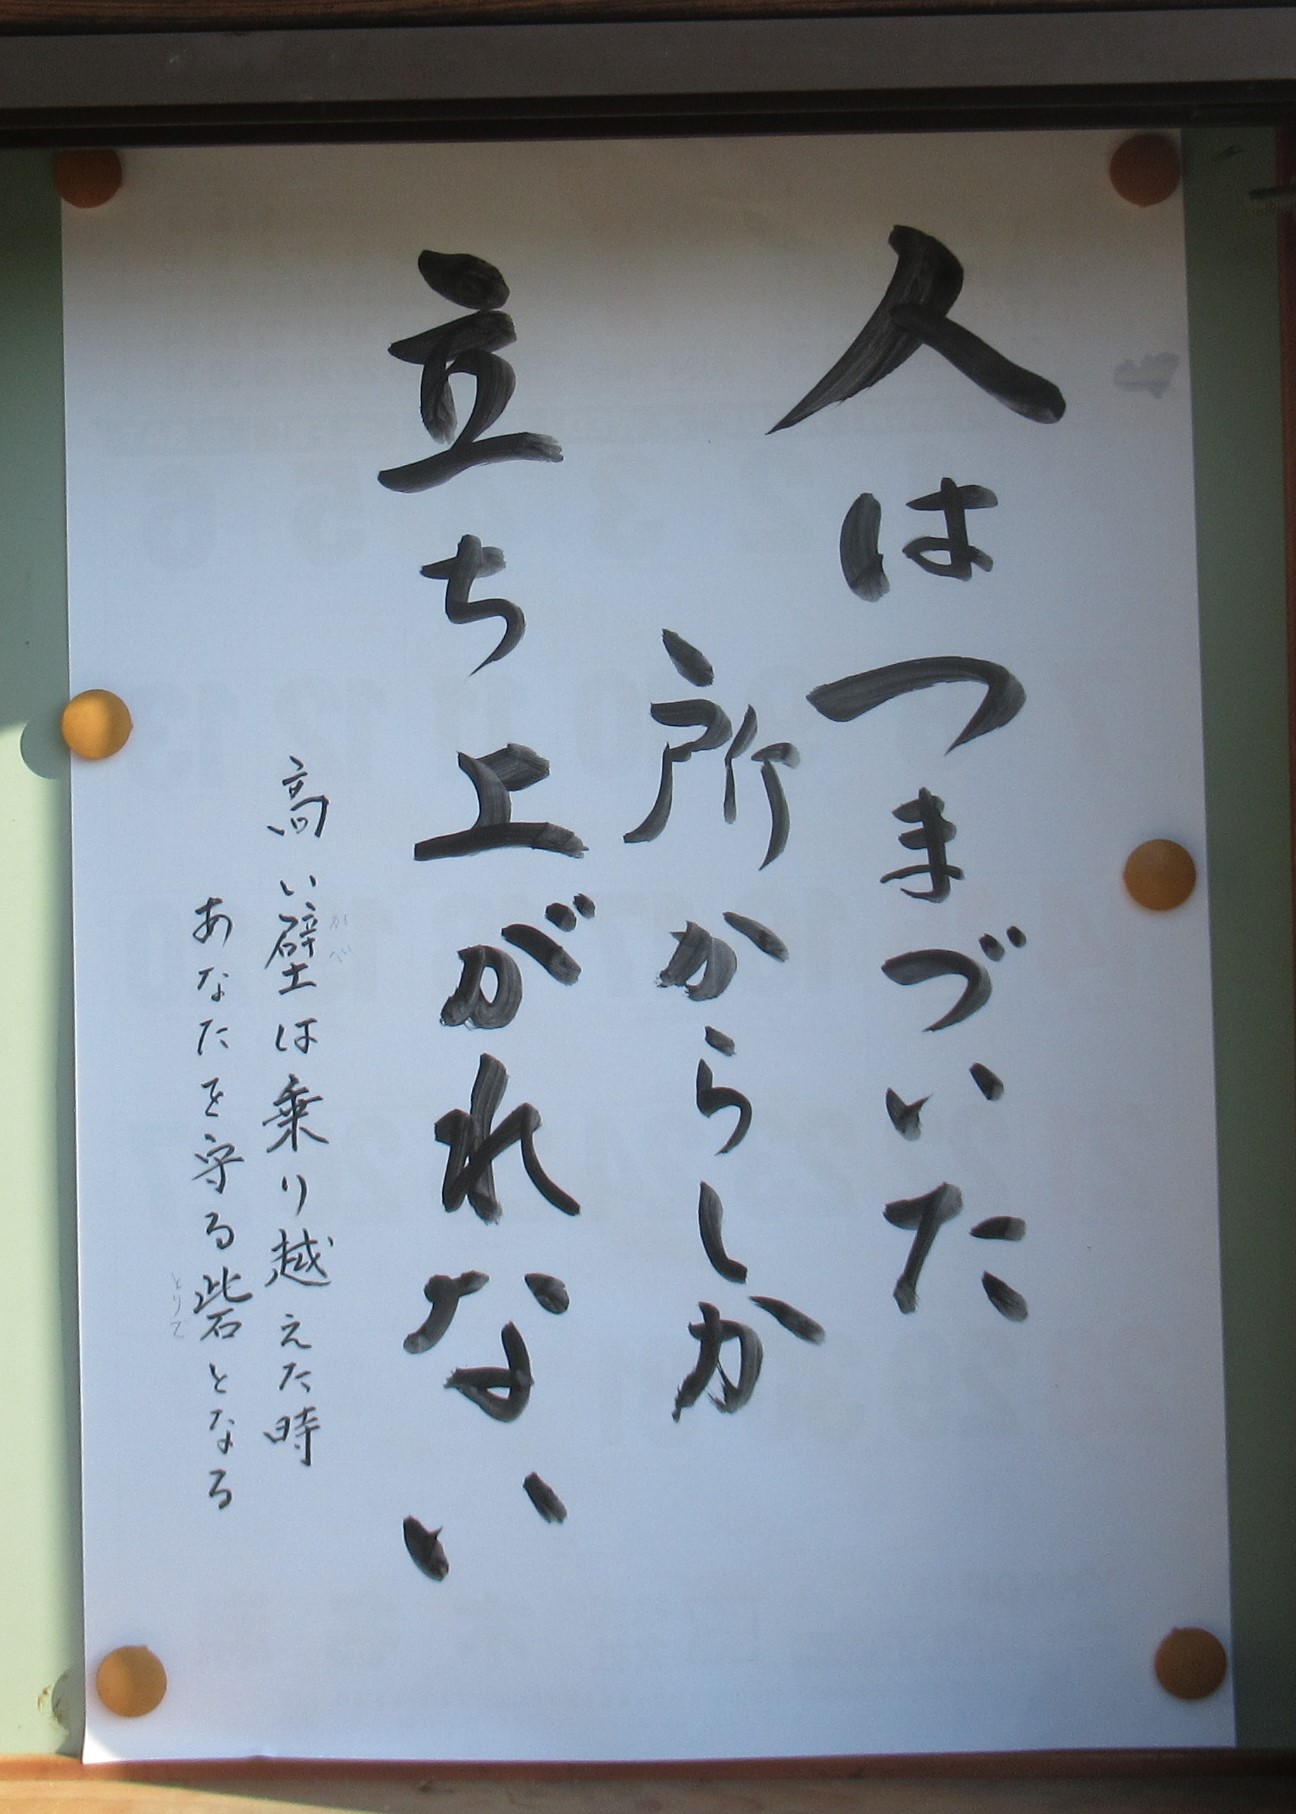 人はつまづいた
所からしか
立ち上がれない
高い壁は乗り越えた時
かべ
あなたを守る砦となる
とりで